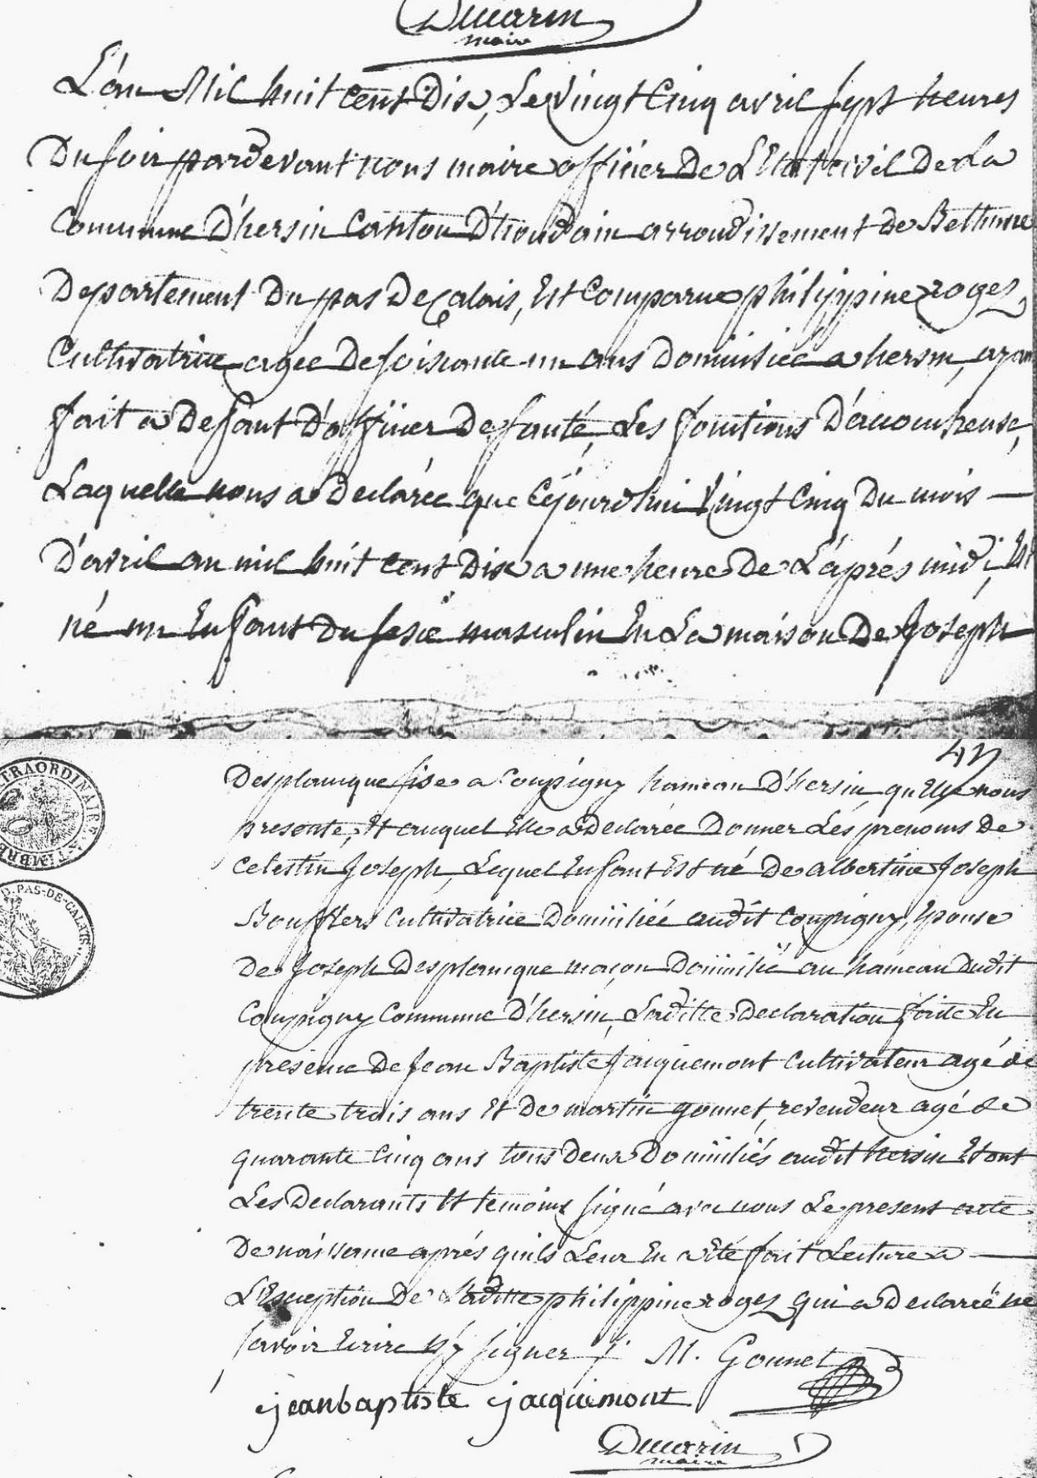 Ducarin
maire
L'an Mil huit cent Dix, Le vingt Cinq avril sept heures
Du soir pardevant nous maire officier De L'Etat civil De La
Commune D'hersin Canton D'houdain arrondissement de Bethune
Departement Du pas De Calais, Est Comparue philippine rogez
Cultivatrice agée De soixante un ans Domiciliée a hersin, ayant
fait a Defaut D'officier De santé, Les fonctions D'accoucheuse,
Laquelle nous a Declarée que Cejourd'hui Vingt Cinq Du mois
D'avril an mil huit cent Dix a une heure De L'aprés midi, Est
né un Enfant Du sexe masculin En La maison De Joseph
Desplanque sise a Coupigny hameau D'hersin, qu'Elle nous
presente, Et auquel Elle a Declarée Donner Les prenoms De
Celestin Joseph, Lequel Enfant Est né De albertine Joseph
Boufflers Cultivatrice Domiciliée audit Coupigny, Epouse
De Joseph Desplanque maçon Domicilié au hameau Dudit
Coupigny Commune D'hersin, Laditte Declaration faite En
presence De Jean Baptiste Jacquemont Cultivateur agé de
trente trois ans Et De martin gonnet, revendeur agé de
quarante Cinq ans tous Deux Domiciliés audit hersin Et ont
Les Declarants Et temoins signé avec nous Le present acte
De naissance aprés qu'il Leur En a Eté fait Lecture a
L'Exception De Laditte philippine rogez qui a Declarée ne
savoir Ecrire Ny signer
M. Gonnet
jeanbaptiste jacquemont
Ducarin
maire
EXTRAORDINAIRE
TIMBRE
PAS-DE-CALAIS